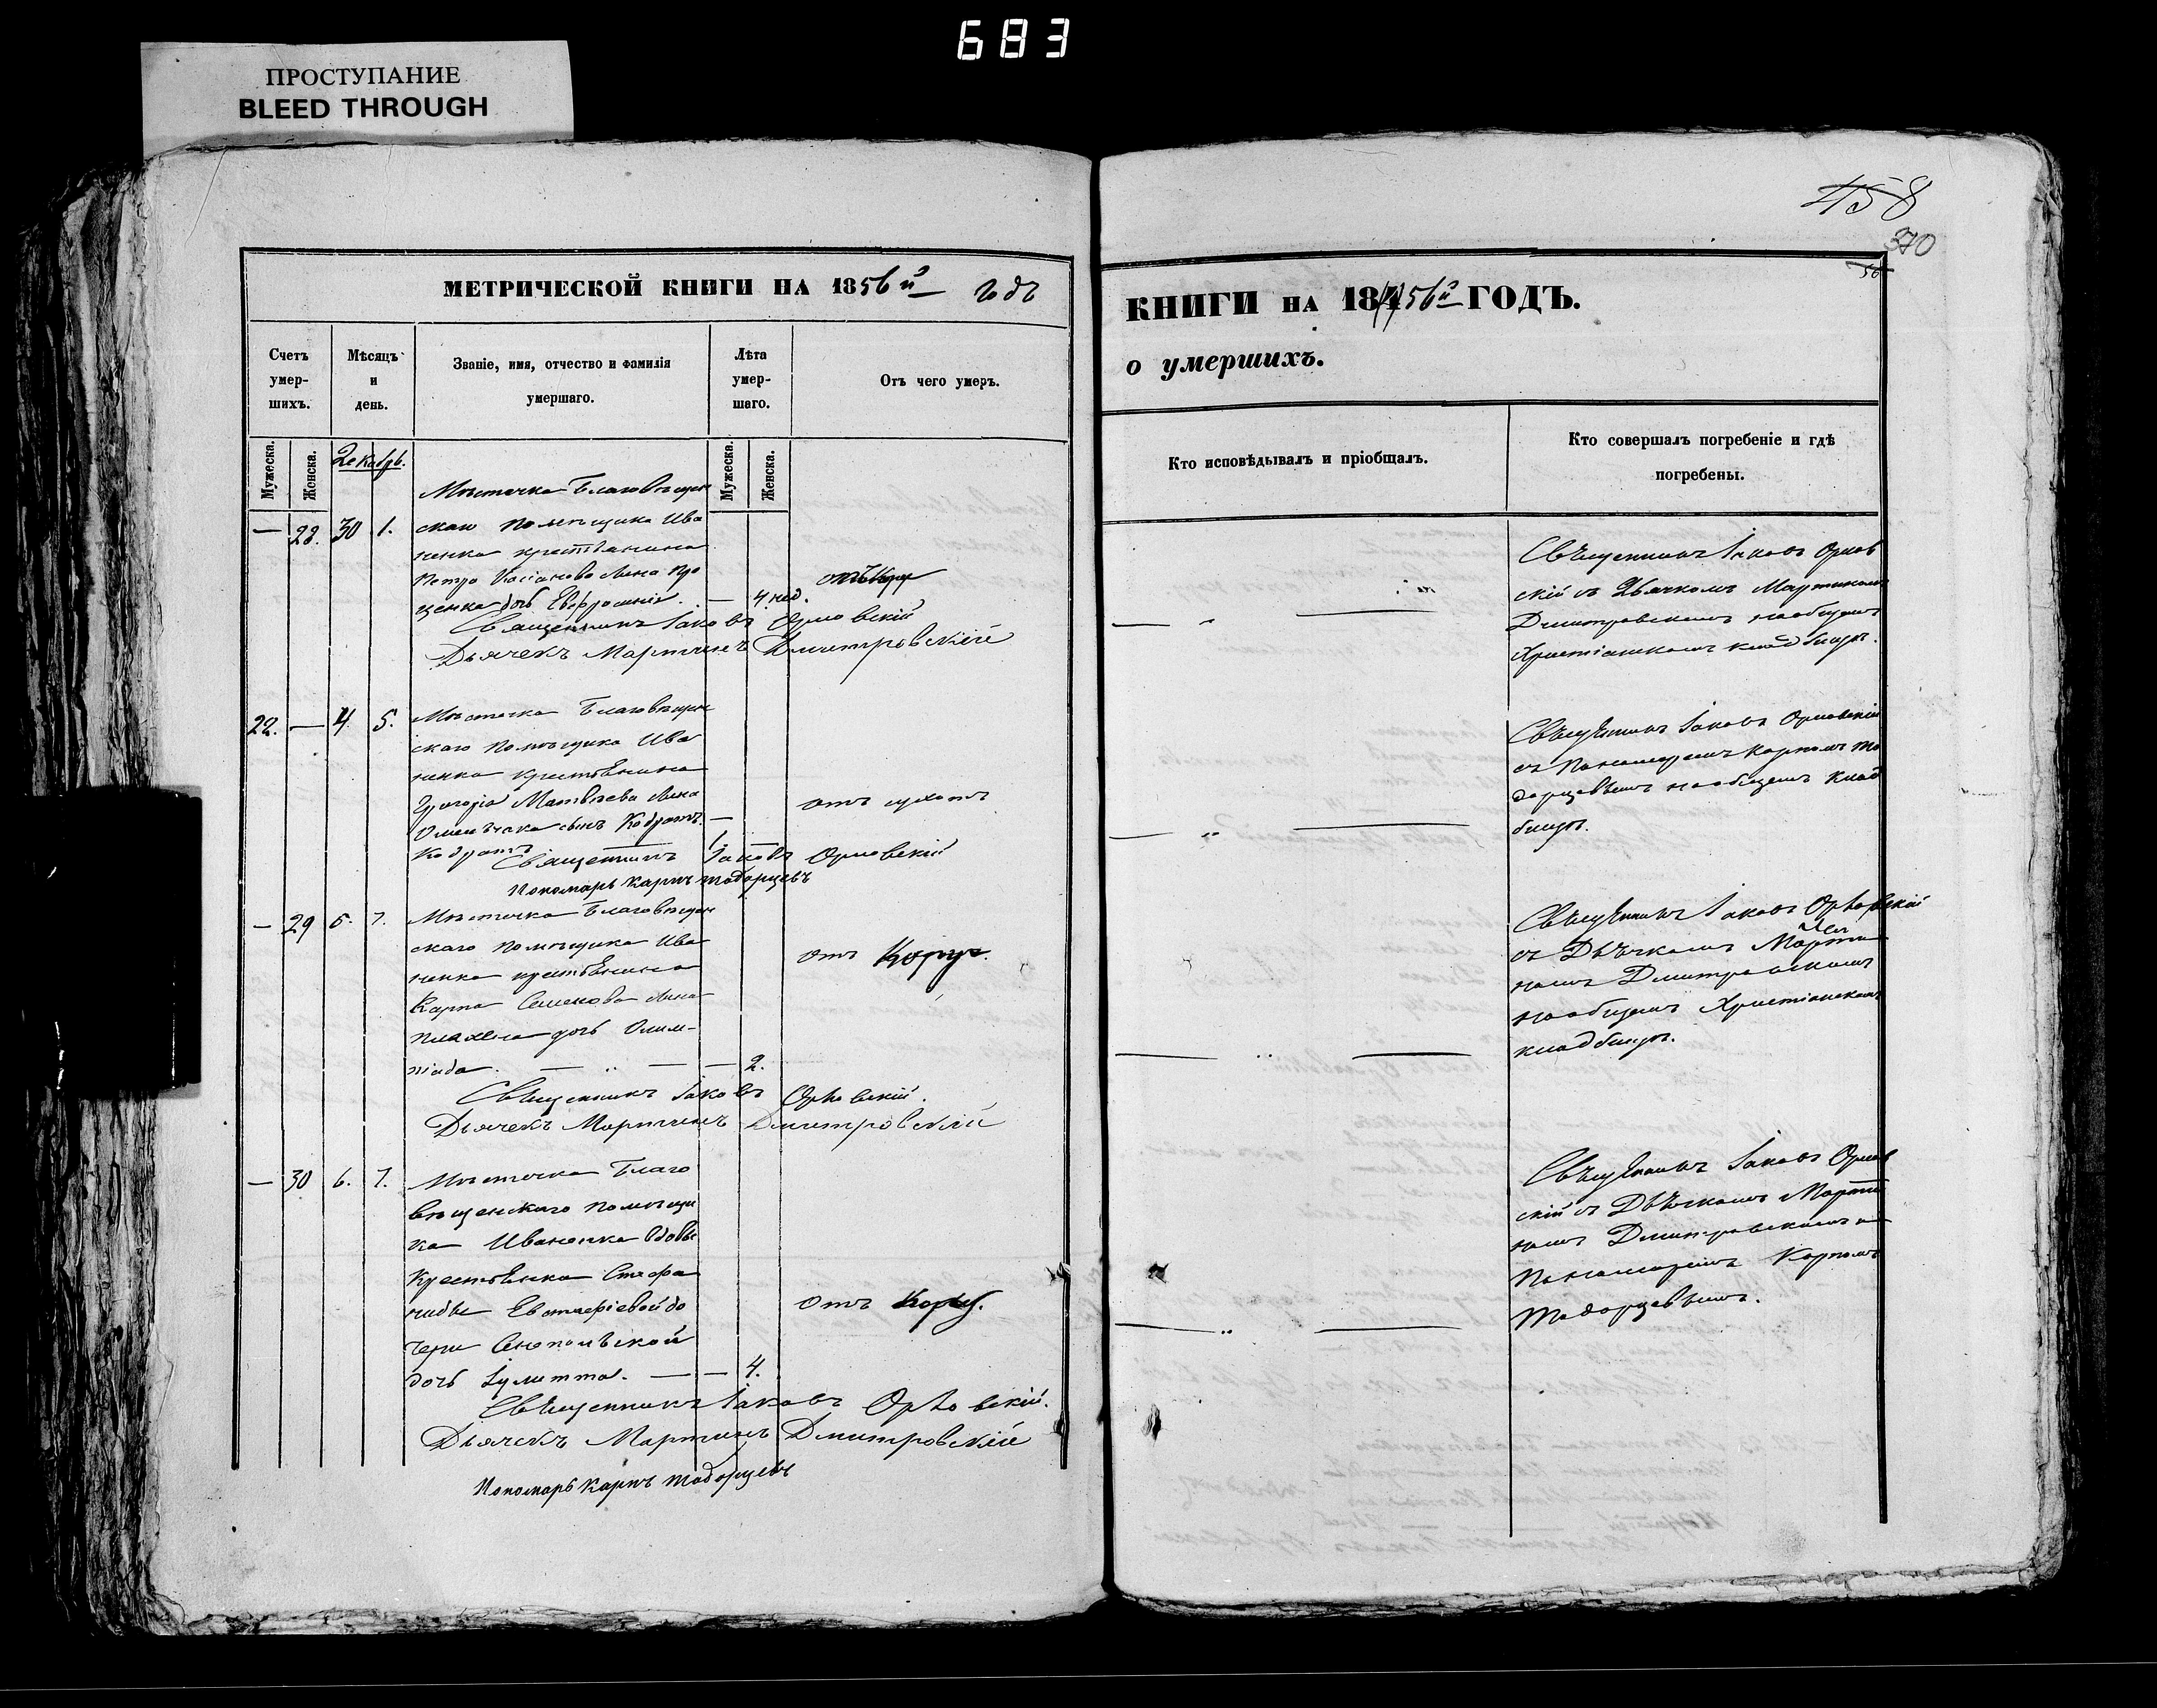 683
ПРОСТУПАНИЕ
BLEED THROUGH
458
370
50
МЕТРИЧЕСКОЙ КНИГИ НА 1856й годъ
Счетъ умер-шихъ.
Мѣсяцъ и день.
Званіе, имя, отчество и фамилія умершаго.
Лѣта умер-шаго.
Отъ чего умеръ.
Мужеска.
Женска.
Декабрь.
Мужеска.
Женска.
Мѣстечка Благовѣщен
— 28. 30 1. скаго помѣщика Ива
ненка крестьянина
Петра Касіанова сына
ценка дочь Евфросинія. — 4 нед.
Священникъ Іаковъ Орловскій
Дьячекъ Мартинъ Дмитровскій
22. — 4. 5. Мѣстечка Благовѣщен
скаго помѣщика Ива
ненка крестьянина
Григорія Матвѣева сына
сынъ Кодратъ. —
Кодратъ 1
отъ сухотъ
Священникъ Іаковъ Орловскій
Пономарь Карпъ Тодорцевъ
— 29 5. 7. Мѣстечка Благовѣщен
скаго помѣщика Ива
ненка крестьянина
отъ
Карпа Семенова сына
дочь Олим-
піада. — „ — — 2.
Священникъ Іаковъ Орловскій.
Дьячекъ Мартинъ Дмитровскій
— 30 6. 7. Мѣстечка Благо
вѣщенскаго помѣщи
ка Иваненка вдовы
крестьянки Стефа
ниды Евстафіевой до
чери
дочь Іулитта. — — 4.
отъ
Священникъ Іаковъ Орловскій.
Дьячекъ Мартинъ Дмитровскій
Пономарь Карпъ Тодорцевъ
КНИГИ НА 18 56й ГОДЪ.
о умершихъ.
Кто исповѣдывалъ и пріобщалъ.
Кто совершалъ погребеніе и гдѣ
погребены.
Священникъ Іаковъ Орлов
скій съ Дьячкомъ Мартиномъ
Дмитровскимъ наобщемъ
Христіанскомъ кладбищѣ.
Священникъ Іаковъ Орловскій
съ Пономаремъ Карпомъ То
дорцевымъ наобщемъ клад
бищѣ.
Священникъ Іаковъ Орловскій
съ Дьячкомъ Марти
номъ Дмитровскимъ
наобщемъ Христіанскомъ
кладбищѣ.
Священникъ Іаковъ Орлов
скій съ Дьячкомъ Марти
номъ Дмитровскимъ и
Пономаремъ Карпомъ
Тодорцевымъ.